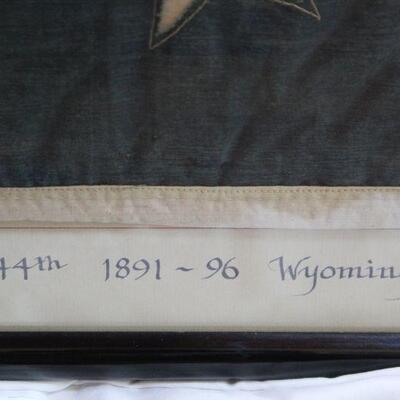 44th 1891 ~ 96 Wyoming